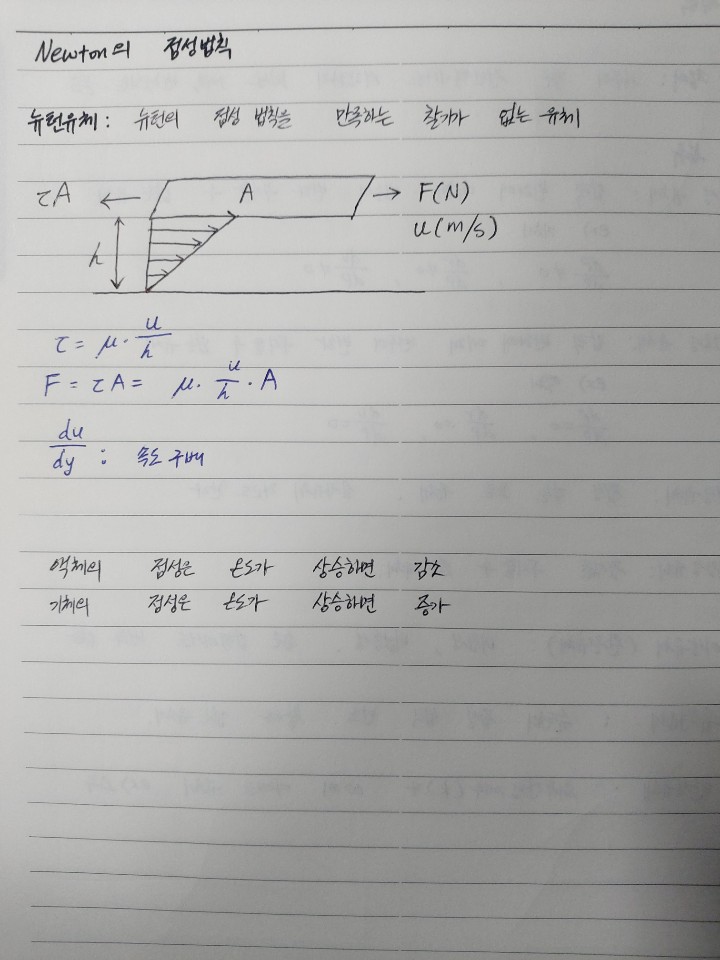 Newton의 점성법칙
뉴턴유체 : 뉴턴의 점성 법칙을 만족하는 찰기가 없는 유체
τA ← A → F(N)
u(m/s)
h
τ = μ · u/h
F = τA = μ · u/h · A
du/dy : 속도 구배
액체의 점성은 온도가 상승하면 감소
기체의 점성은 온도가 상승하면 증가